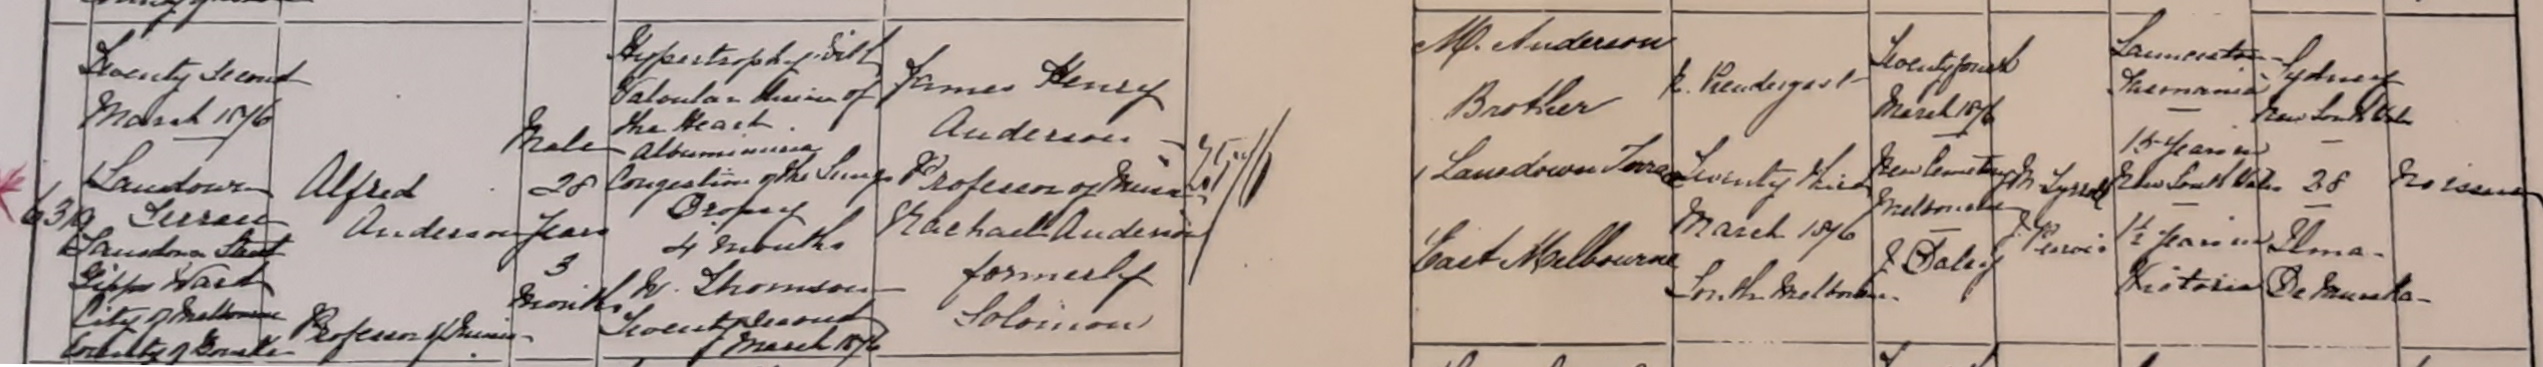 Twenty Second
March 1876
Lansdown
Terrace
Lansdown Street
Gipps Ward
City of Melbourne
County of Bourke
Alfred
Anderson
Professor of Music
Male
28
Years
3
Months
Hypertrophy with
Valvular disease of
the Heart.
Albuminuria
Congestion of the Lungs
Dropsy
4 months
W. Thomson
Twenty second
March 1876
James Henry
Anderson
Professor of Music
Rachael Anderson
formerly
Solomon
M. Anderson
Brother
Lansdown Terrace
East Melbourne
K. Prendergast
Twenty third
March 1876
South Melbourne
Twenty fourth
March 1876
New Cemetery
Melbourne
J. Daley
M. Tyrrell
Launceston
Tasmania
15 years in
New South Wales
1½ years in
Victoria
Sydney
New South Wales
28
Ilma
De Murska
No issue